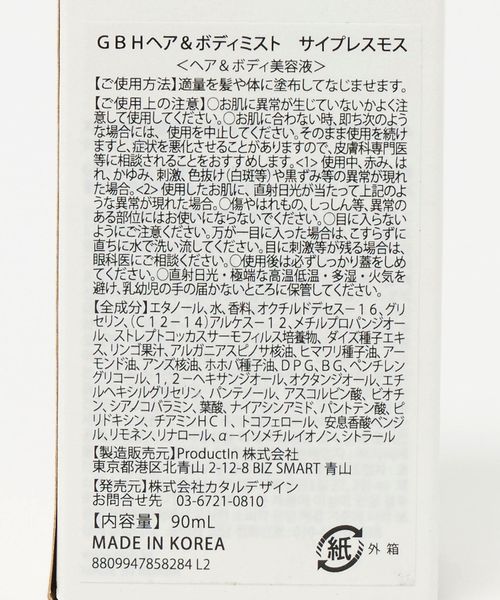 GBHヘア＆ボディミスト　サイプレスモス
＜ヘア＆ボディ美容液＞
【ご使用方法】適量を髪や体に塗布してなじませます。
【ご使用上の注意】○お肌に異常が生じていないかよく注
意して使用してください。○お肌に合わない時、即ち次のよう
な場合には、使用を中止してください。そのまま使用を続け
ますと、症状を悪化させることがありますので、皮膚科専門医
等に相談されることをおすすめします。<1> 使用中、赤み、は
れ、かゆみ、刺激、色抜け(白斑等)や黒ずみ等の異常が現れ
た場合。<2> 使用したお肌に、直射日光が当たって上記のよ
うな異常が現れた場合。○傷やはれもの、しっしん等、異常の
ある部位にはお使いにならないでください。○目に入らない
ようにご注意ください。万が一目に入った場合は、こすらずに
直ちに水で洗い流してください。目に刺激等が残る場合は、
眼科医にご相談ください。○使用後は必ずしっかり蓋をしめ
てください。○直射日光・極端な高温低温・多湿・火気を
避け、乳幼児の手の届かないところに保管してください。
【全成分】エタノール、水、香料、オクチルドデセス－１６、グリ
セリン、(Ｃ１２－１４)アルケス－１２、メチルプロパンジオー
ル、ストレプトコッカスサーモフィルス培養物、ダイズ種子エキ
ス、リンゴ果汁、アルガニアスピノサ核油、ヒマワリ種子油、アー
モンド油、アンズ核油、ホホバ種子油、ＤＰＧ、ＢＧ、ペンチレン
グリコール、１，２－ヘキサンジオール、オクタンジオール、エチ
ルヘキシルグリセリン、パンテノール、アスコルビン酸、ビオチ
ン、シアノコバラミン、葉酸、ナイアシンアミド、パントテン酸、ピ
リドキシン、チアミンＨＣｌ、トコフェロール、安息香酸ベンジ
ル、リモネン、リナロール、α－イソメチルイオノン、シトラール
【製造販売元】ProductIn 株式会社
東京都港区北青山 2-12-8 BIZ SMART 青山
【発売元】株式会社カタルデザイン
お問合せ先　03-6721-0810
【内容量】　90mL
MADE IN KOREA
8809947858284 L2
紙 外箱